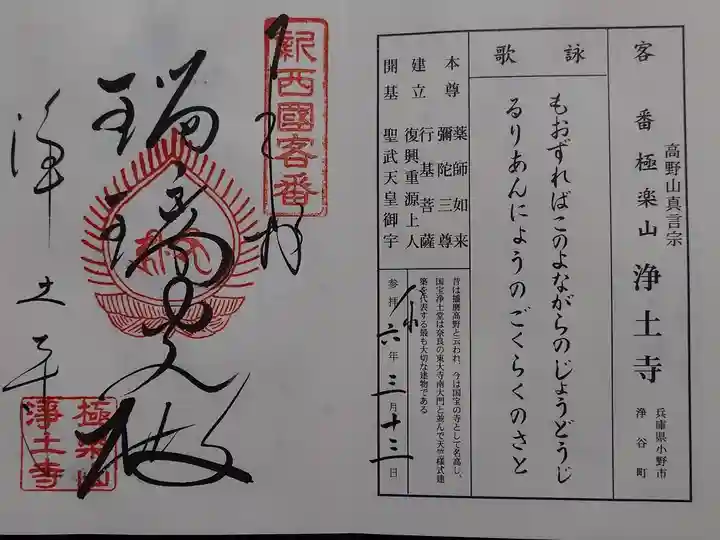 客番 極楽山 浄土寺
高野山真言宗
兵庫県小野市
浄谷町
詠歌
もおずればこのよながらのじょうどうじ
るりあんにょうのごくらくのさと
本尊 薬師如来
彌陀三尊
建立 行基菩薩
復興重源上人
開基 聖武天皇御宇
昔は播磨高野と云われ、今は国宝の寺として名高し、
国宝浄土堂は奈良の東大寺南大門と並んで天竺様式建
築を代表する最も大切な建物である
参拝 六年三月十三日
新西國客番
瑠璃光殿
浄土寺
極楽山
淨土寺